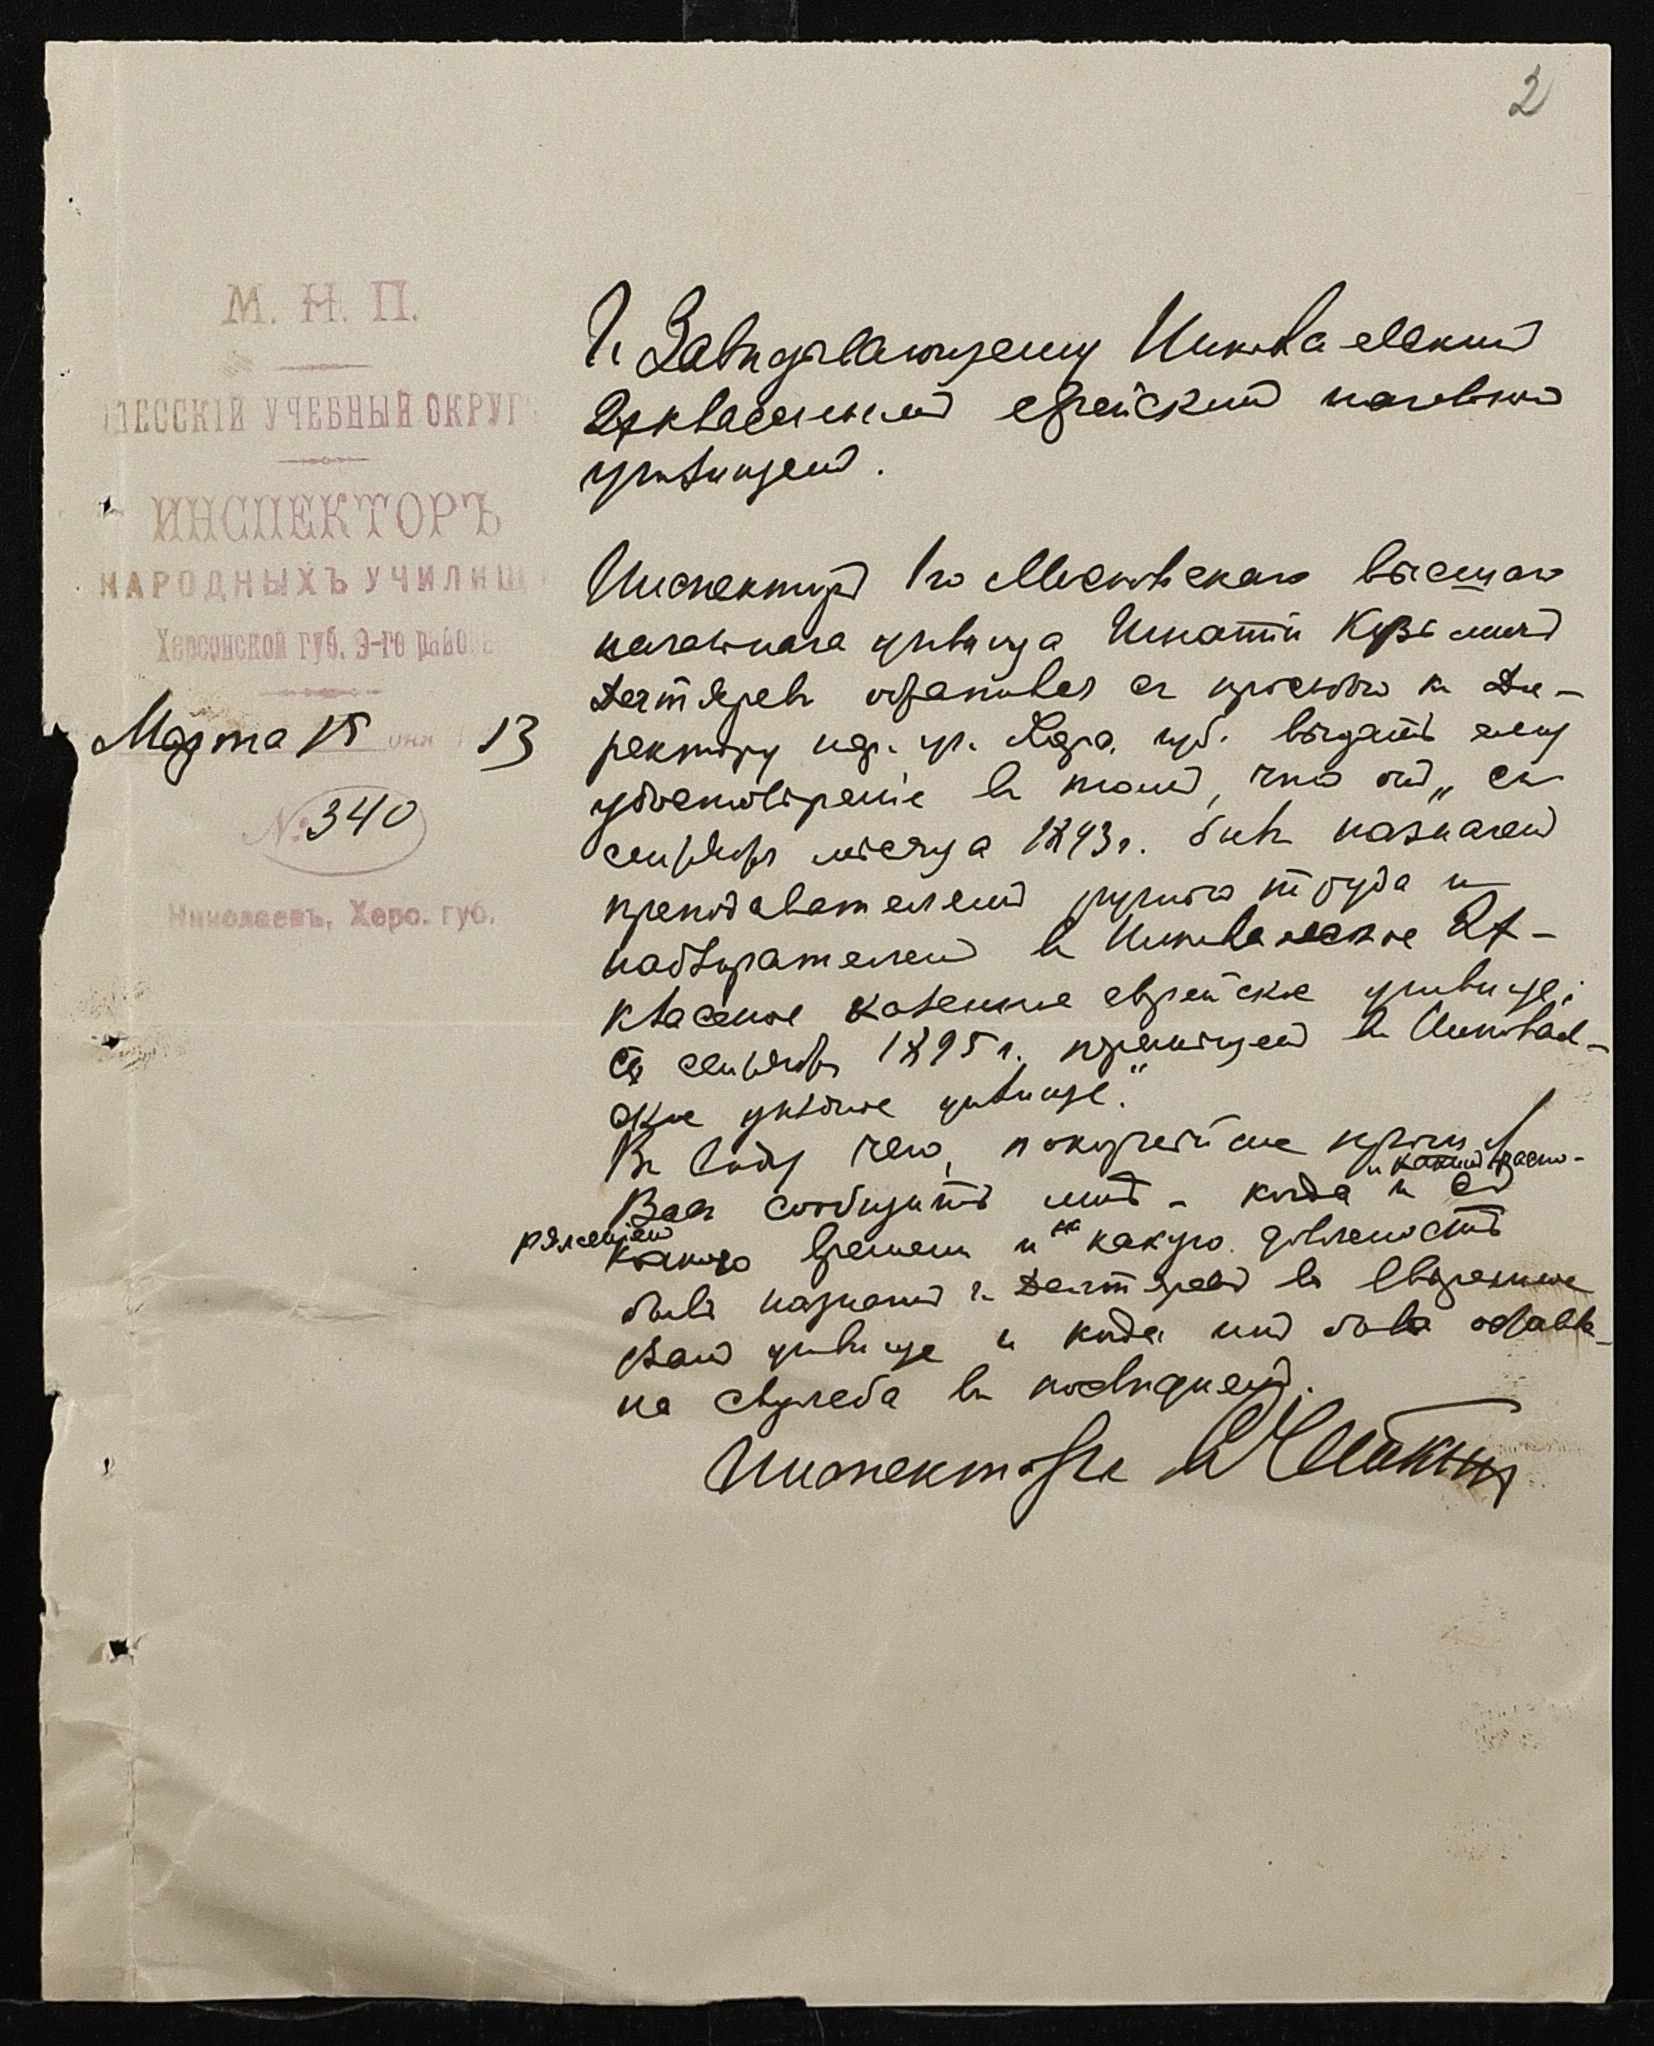 2
М. Н. П.
ДЕССКІЙ УЧЕБНЫЙ ОКРУГ
ИНСПЕКТОРЪ
НАРОДНЫХЪ УЧИЛИЩ
Херсонской губ. 3-го район
Марта 15 дня 13
№ 340
Николаевъ, Херс. губ.
Г. Завѣдывающему Николаевскимъ
2хкласснымъ еврейскимъ начальнымъ
училищемъ.
Инспекторъ 1го Московскаго высшаго
начальнаго училища Игнатій Кузьмичъ
Дегтяревъ обратился съ просьбою къ Ди-
ректору нар. уч. Херс. губ. выдать ему
удостовѣреніе въ томъ, что онъ „съ
сентября мѣсяца 1893 г. былъ назначенъ
преподавателемъ ручного труда и
надзирателемъ въ Николаевское 2х-
классное казенное еврейское училище;
съ сентября 1895 г. перемѣщенъ въ Николаев-
ское уѣздное училище".
Въ виду чего, покорнѣйше прошу
Васъ сообщить мнѣ - когда и каким распо-
ряженіемъ и съ
какого времени и на какую должность
былъ назначенъ г. Дегтяревъ въ ввѣренное
Вамъ училище и когда имъ была оставле-
на служба въ послѣднемъ.
Инспекторъ